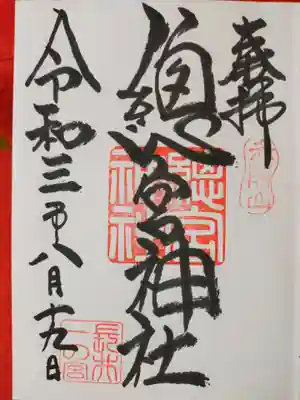 奉拝
總宮神社
總宮
神社
令和三年八月十九日
長井
一の宮